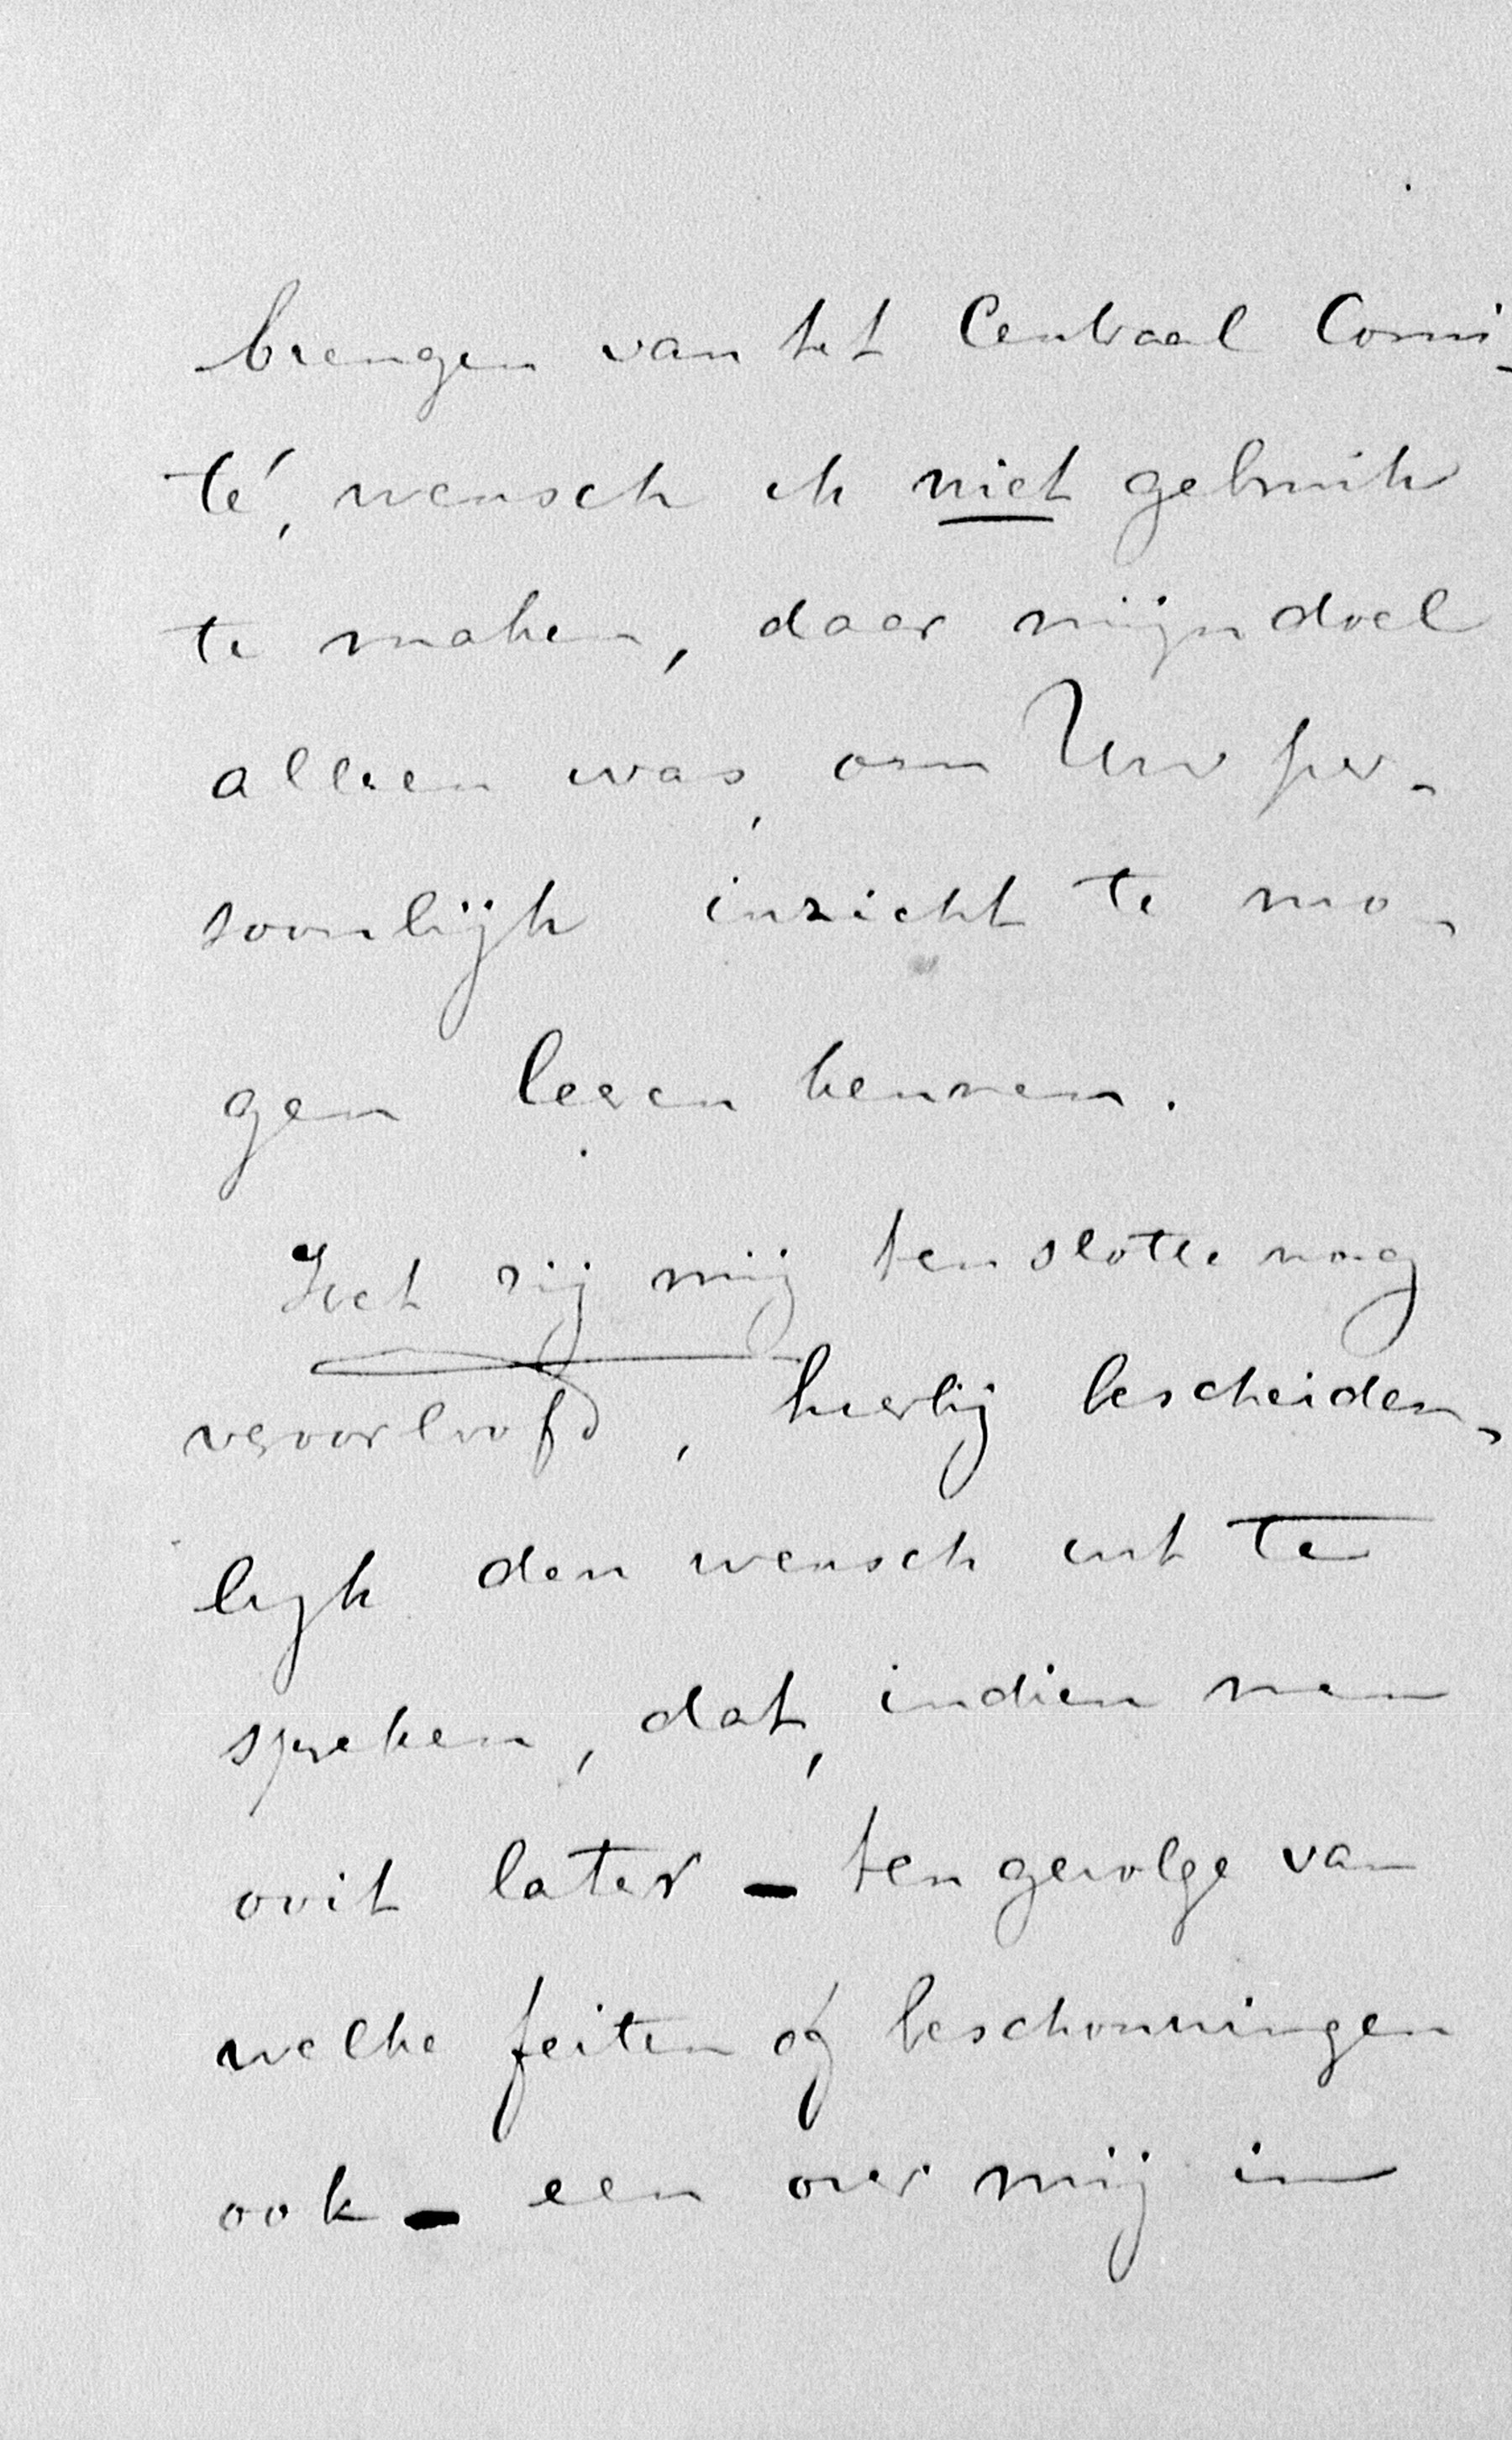 brengen van het Centraal Comi-
té, wensch ik niet gebruik
te maken, daar mijn doel
alleen was, om Uw per-
soonlijk inzicht te mo-
gen leeren kennen.
Het zij mij ten slotte nog
veroorloofd, hierbij bescheiden-
lijk den wensch uit te
spreken, dat, indien men
ooit later - ten gevolge van
welke feiten óf beschouwingen
ook - een over mij in